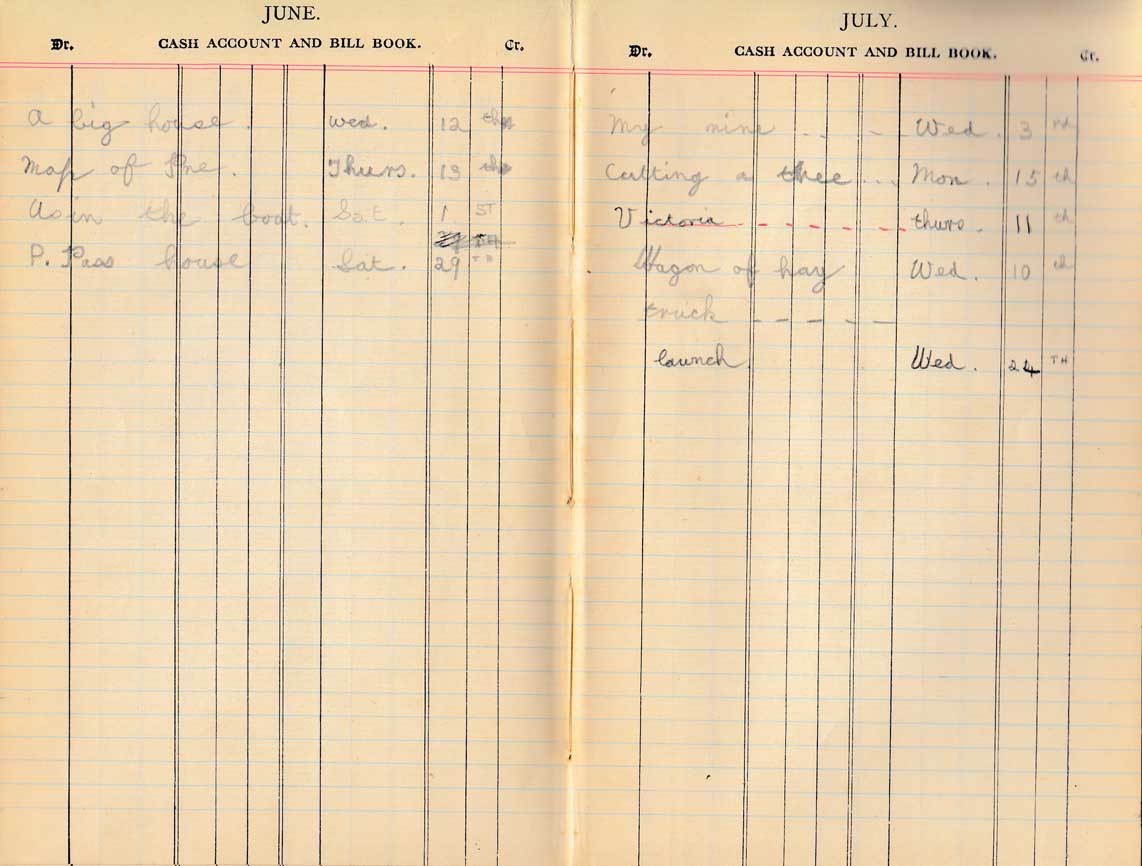 JUNE.
Dr. CASH ACCOUNT AND BILL BOOK. Cr.
A big house. Wed. 12 th
Map of Pne. Thurs. 13 th
Us in the boat. Sat. 1 ST
P. Pass house Sat. 29 TH
JULY.
Dr. CASH ACCOUNT AND BILL BOOK. Cr.
My nine .. - Wed. 3 rd
Cutting a thee ... Mon. 15 th
Victoria - - - - - - thurs. 11 th
Wagon of hay Wed. 10 th
truck - - - - -
launch. Wed. 24 TH